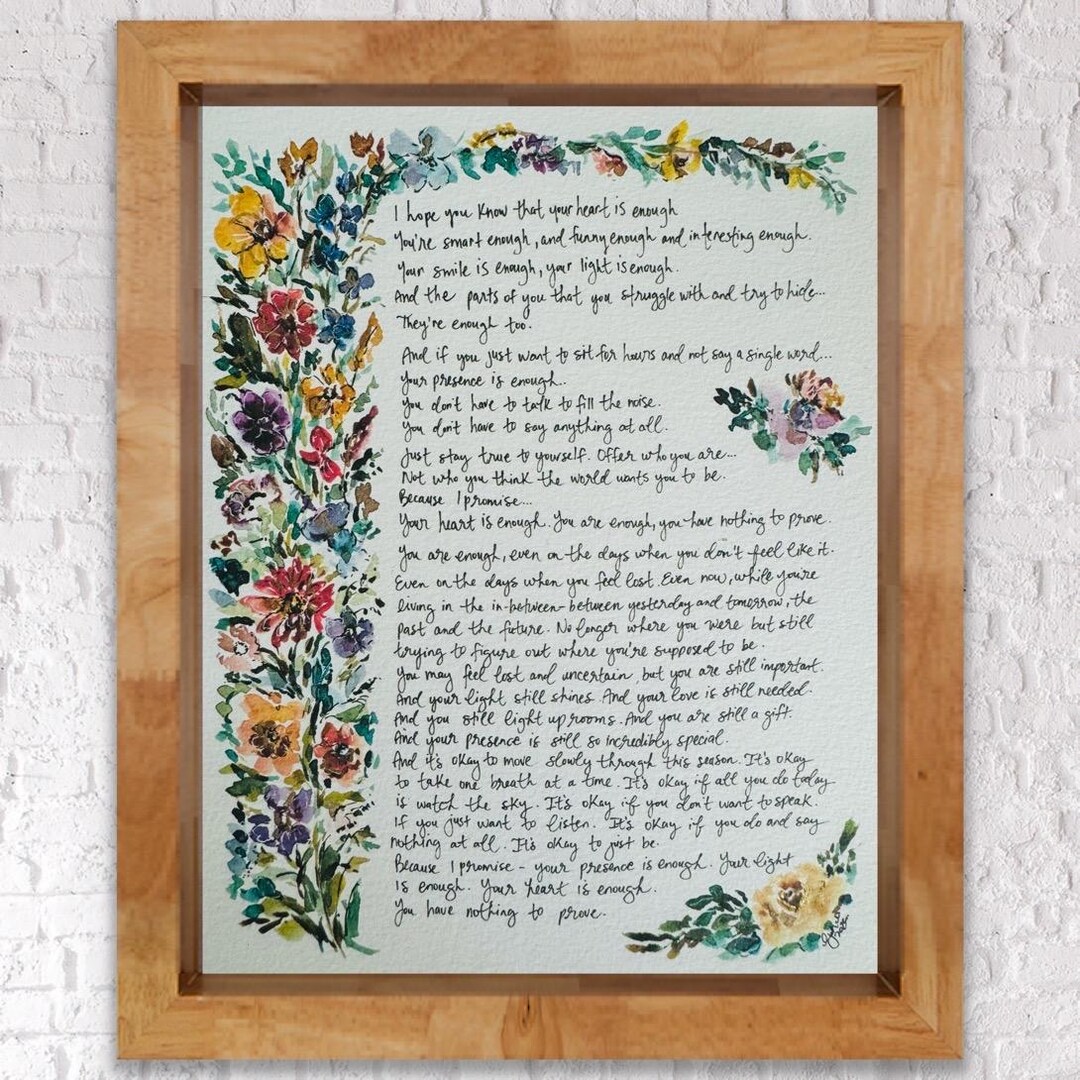 I hope you know that your heart is enough
You're smart enough, and funny enough and interesting enough.
Your smile is enough, your light is enough.
And the parts of you that you struggle with and try to hide...
They're enough too.
And if you just want to sit for hours and not say a single word...
Your presence is enough..
You don't have to talk to fill the noise.
You don't have to say anything at all.
Just stay true to yourself. Offer who you are...
Not who you think the world wants you to be.
Because I promise...
Your heart is enough. You are enough, you have nothing to prove.
You are enough, even on the days when you don't feel like it.
Even on the days when you feel lost. Even now, while you're
living in the in-between-between yesterday and tomorrow, the
past and the future. No longer where you were but still
trying to figure out where you're supposed to be.
You may feel lost and uncertain, but you are still important.
And your light still shines. And your love is still needed.
And you still light up rooms. And you are still a gift.
And your presence is still so incredibly special.
And it's okay to move slowly through this season. It's okay
to take one breath at a time. It's okay if all you do today
is watch the sky. It's okay if you don't want to speak.
If you just want to listen. It's okay if you do and say
nothing at all. It's okay to just be.
Because I promise - your presence is enough. Your light
is enough. Your heart is enough.
You have nothing to prove.